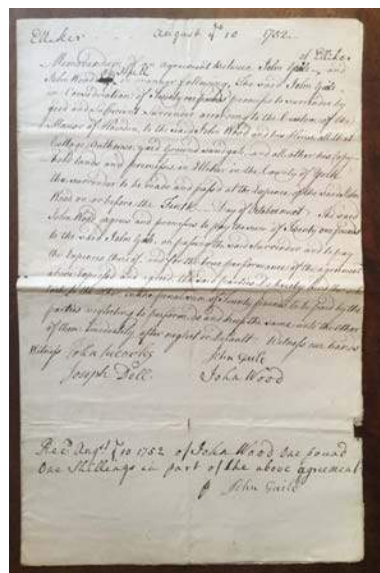 Elliker August ye 10 1752
Memorandum of an agreement between John Gale of Elliker and
John Wood of in manner following. The said John Gale
in Consideration of Twenty one pounds promises to surrender by
good and sufficient surrender according to the Custom of the
Manor of to the said John Wood and his Heirs, all that
Cottage, Outhouse, yard Ground and garth, and all other his Copy-
hold lands and premises in Elliker in the County of York
the surrender to be made and passed at the Expence of the said John
Wood on or before the Tenth Day of October next. The said
John Wood agrees and promises to pay the sum of Twenty one pounds
to the said John Gale on passing the said Surrender and to pay
the Expences thereof. and for the true performance of the agreement
above expressed and agreed the said parties do hereby bind themselves
each to the other in the penal sum of Twenty pounds to be paid by the
parties neglecting to perform and keep the same unto the other
of them Immediately after neglect or Default. Witness our hands
Witness John John Gale
Joseph Dell John Wood
Recd Augst ye 10 1752 of John Wood One pound
One Shillings in part of the above agreement
p John Gale